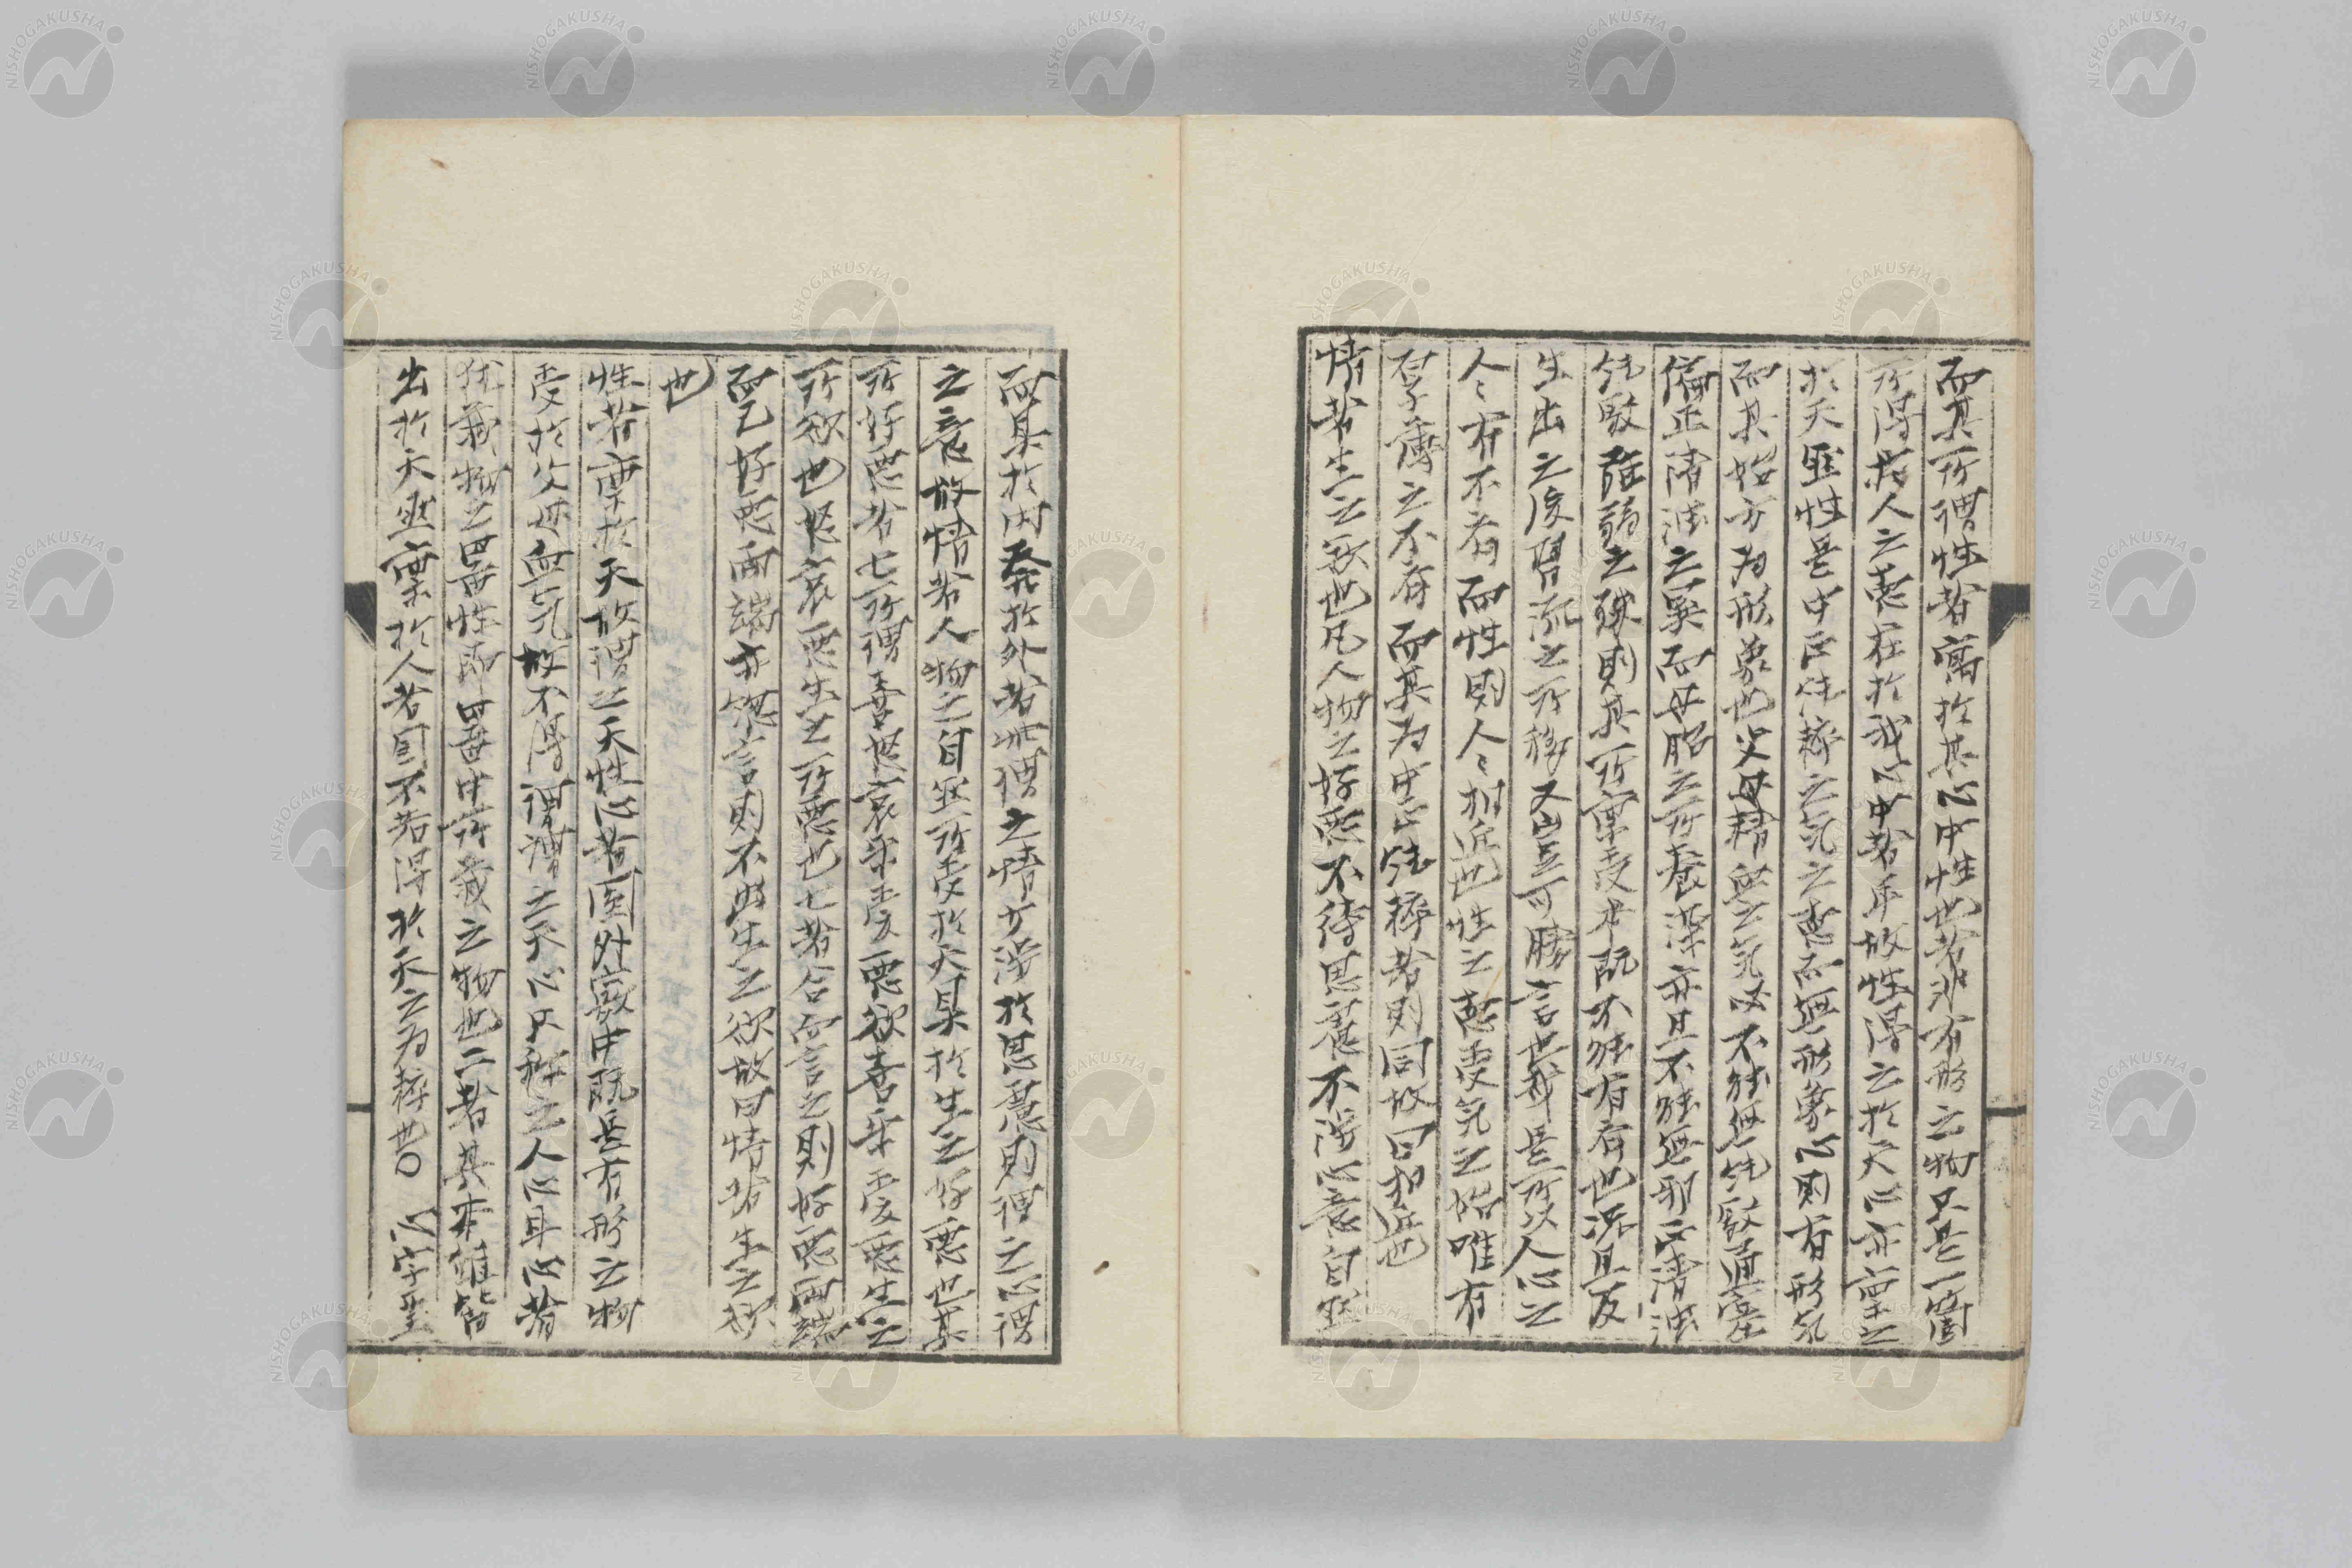 而其所謂性者寓於其心中性也者非有形之物只是一箇
所得於人之悳在於我心中者耳故性得之於天心亦稟之
於天然性是中正純粹之気之悳而無形象心則有形気
而其始方為形象也父母精血之気必不能無純駁通塞
偏正清濁之異而母胎之所養深亦且不能無邪正清濁
純駁強弱之殊則其所稟受求既不能有斉也況且及
生出之後習流之所移又豈可勝言也哉是所以人心之
人〻有不斉而性則人〻相近也性之悳受気之始唯有
厚薄之不斉而其為中正純粹者則同故曰相近也
情者生之欲也凡人物之好悪不待思慮不渉心意自然
而具於内発於外者此謂之情才渉於思慮則謂之心謂
之意故情者人物之自然所受於天具於生之好悪也其
所好悪者七所謂喜怒哀楽愛悪欲喜楽愛悪生之
所欲也怒哀悪生之所悪也七者合而言之則好悪両端
而已好悪両端亦総言則不出生之欲故曰情者生之欲
也
性者稟於天故謂之天性心者円外竅中既是有形之物
受於父母血気故不得謂謂之天心只称之人心耳心者
猶載物之器性即器中所載之物也二者其本雖皆
出於天然稟於人者固不若得於天之為粹也〇　心字呈